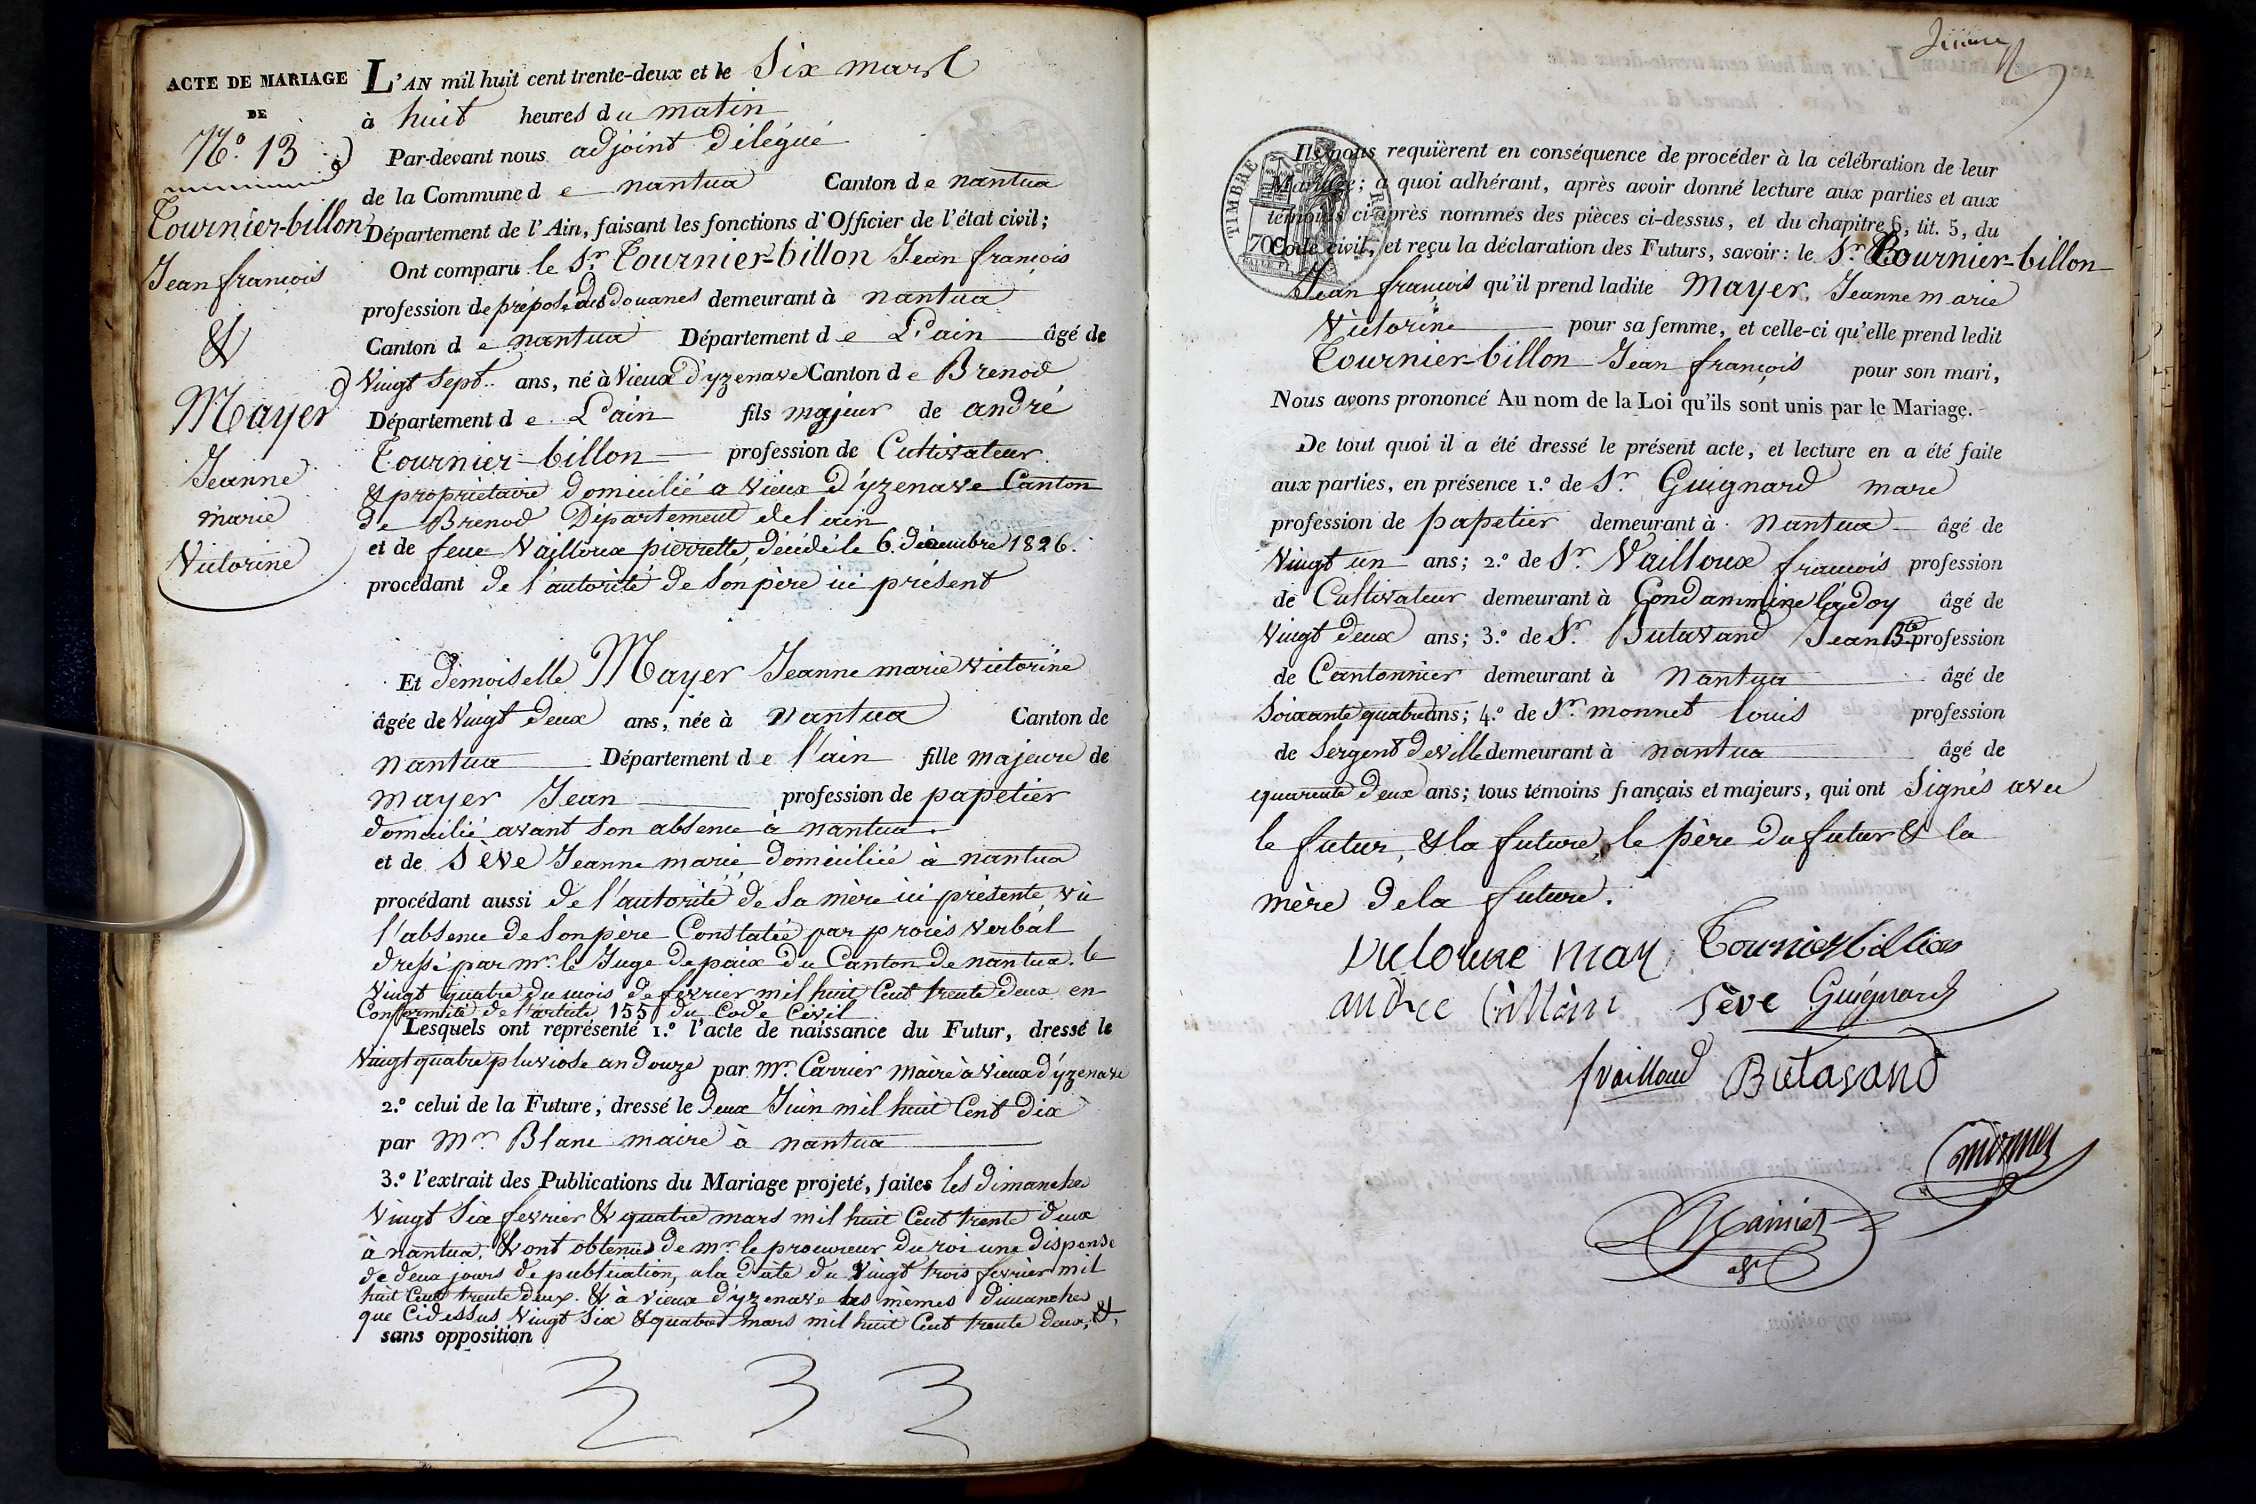 ACTE DE MARIAGE
DE
N.º 13
Tournier-billon
Jean françois
&
Mayer
Jeanne
marie
Victorine
L'AN mil huit cent trente-deux et le Six mars
à huit heures du matin
Par-devant nous adjoint délégué
de la Commune de nantua Canton de nantua
Département de l'Ain, faisant les fonctions d'Officier de l'état civil;
Ont comparu le Sr. Tournier-billon Jean françois
profession de préposé des douanes demeurant à nantua
Canton de nantua Département de L'ain âgé de
Vingt Sept ans, né à Vieux d'yzenave Canton de Brenod
Département de L'ain fils majeur de andré
Tournier-billon profession de Cultivateur
& propriétaire domicilié a vieux d'yzenave Canton
de Brenod Département de l'ain
et de feue Vailloux pierrette, décédé le 6. décembre 1826.
procédant de l'autorité de Son père ici présent
Et demoiselle Mayer Jeanne marie victorine
âgée de Vingt deux ans, née à nantua Canton de
nantua Département de l'ain fille majeure de
mayer Jean profession de papetier
domicilié avant son absence à nantua.
et de Sève Jeanne marie domiciliée à nantua
procédant aussi de l'autorité de Sa mère ici présente, vù
l'absence de Son père Constatée par procès verbal
dressé par mr. le Juge de paix du Canton de nantua. le
Vingt quatre du mois de fevrier mil huit Cent trente deux en
Conformité de l'article 155 du Code Civil
Lesquels ont représenté 1.º l'acte de naissance du Futur, dressé le
Vingt quatre pluviose an douze par mr. Carrier maire à vieux d'yzenave
2.º celui de la Future, dressé le deux Juin mil huit Cent dix
par mr. Blanc maire à nantua
3.º l'extrait des Publications du Mariage projeté, faites les dimanches
Vingt Six fevrier & quatre mars mil huit Cent trente deux
à nantua, & ont obtenus de mr. le procureur du roi une dispense
de deux jours de publication, a la date du Vingt trois fevrier mil
huit Cent trente deux. & à vieux d'yzenave les mèmes dimanches
que Cidessus Vingt Six & quatre mars mil huit Cent trente deux, &,
sans opposition
TIMBRE ROYAL
70
Ils nous requièrent en conséquence de procéder à la célébration de leur
Mariage; à quoi adhérant, après avoir donné lecture aux parties et aux
témoins ci-après nommés des pièces ci-dessus, et du chapitre 6, tit. 5, du
Code civil, et reçu la déclaration des Futurs, savoir: le Sr. Tournier-billon
Jean françois qu'il prend ladite Mayer, Jeanne marie
Victorine pour sa femme, et celle-ci qu'elle prend ledit
Tournier-billon Jean françois pour son mari,
Nous avons prononcé Au nom de la Loi qu'ils sont unis par le Mariage.
De tout quoi il a été dressé le présent acte, et lecture en a été faite
aux parties, en présence 1.º de Sr. Guignard marc
profession de papetier demeurant à nantua âgé de
Vingt un ans; 2.º de Sr. Vailloux francois profession
de Cultivateur demeurant à Condammine la doy âgé de
Vingt deux ans; 3.º de Sr. Butavand Jean Bte. profession
de Cantonnier demeurant à nantua âgé de
Soixante quatre ans; 4.º de Sr. monnet louis profession
de Sergent de ville demeurant à nantua âgé de
quarente deux ans; tous témoins français et majeurs, qui ont Signés avec
le futur, & la future, le père du futur & la
mère de la future.
victorine may Tournier billion
andre billion Sève Guignard
fvailloud Butavand
monnet